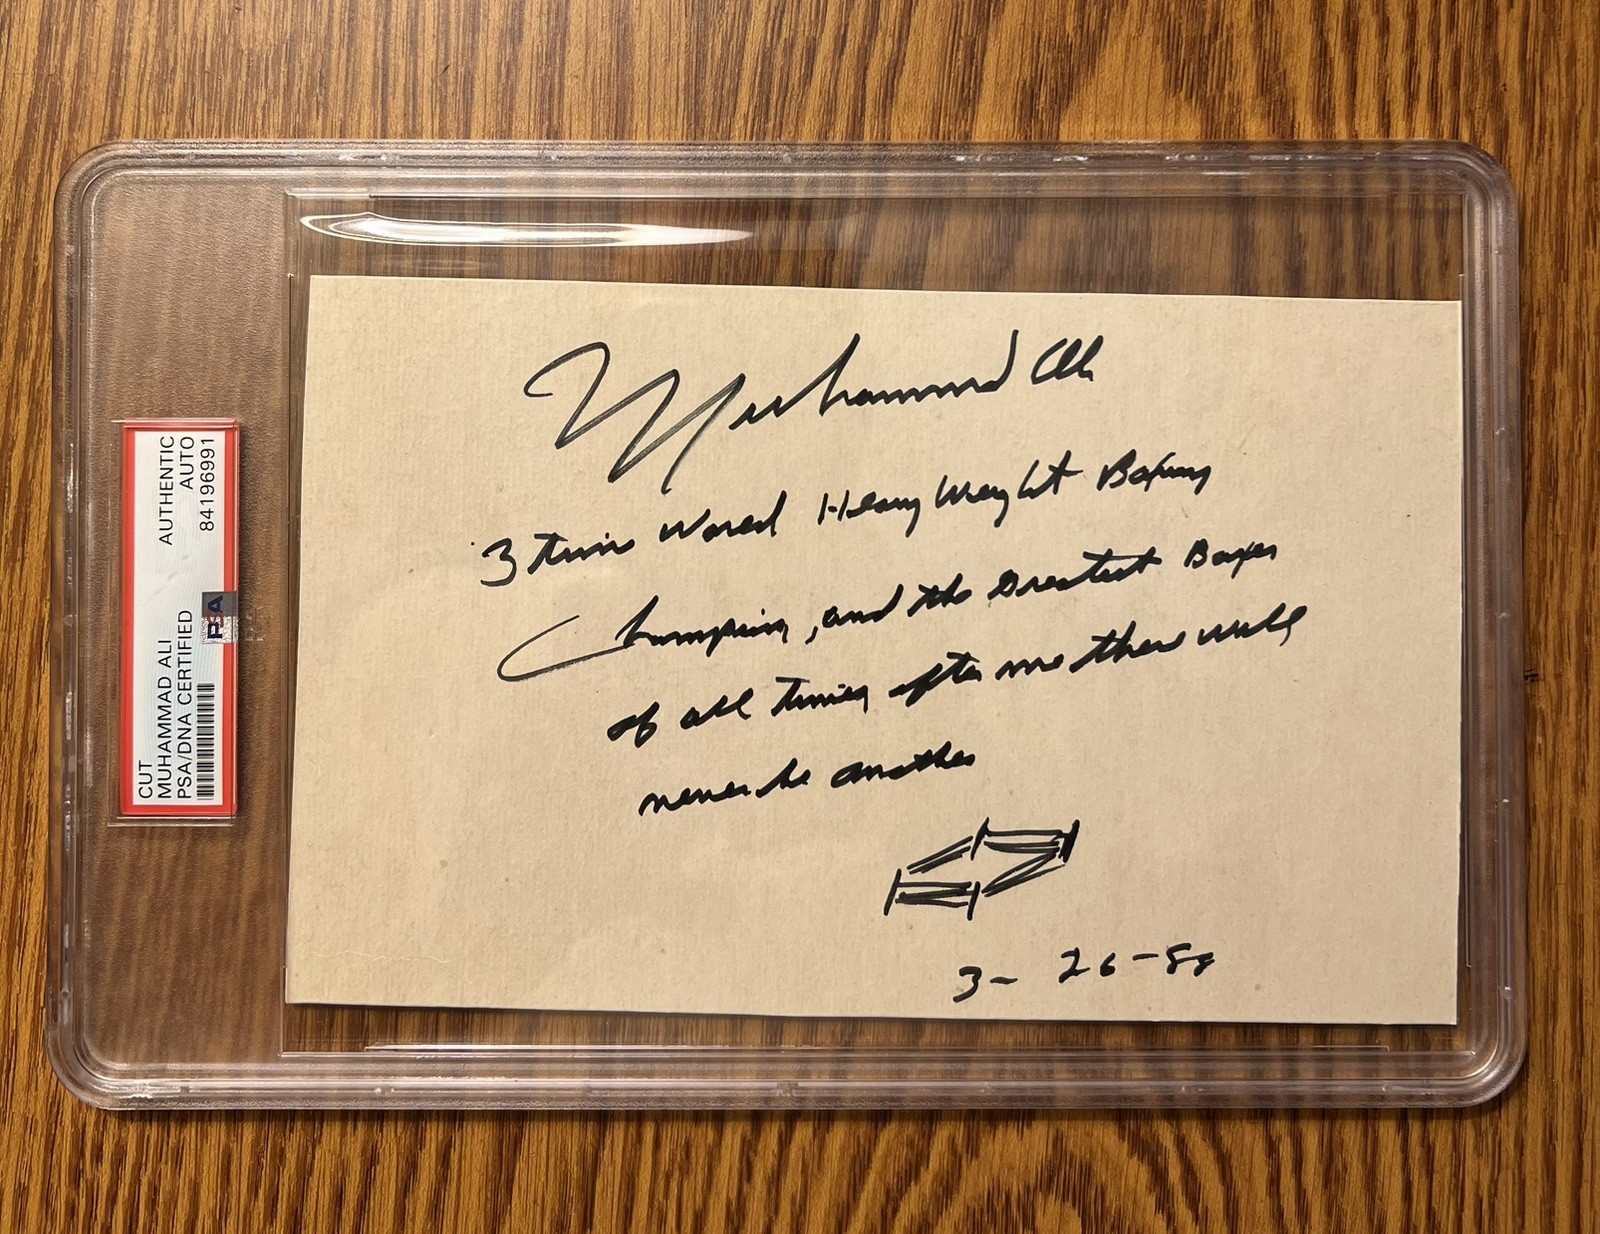 CUT
MUHAMMAD ALI
PSA/DNA CERTIFIED
AUTHENTIC
AUTO
84196991
PSA
Muhammad Ali
3 time World Heavy Weight Boxing
Champion, and the Greatest Boxer
of all times after me there will
never be another
3-26-88